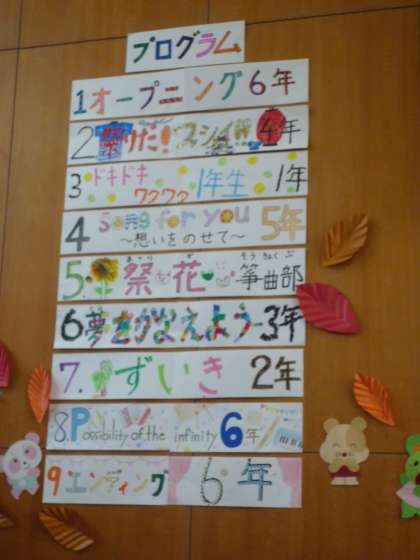 プログラム
1 オープニング 6年
2 祭りだ!ヌシイ!! 4年
3 ドキドキ ワクワク 1年生 1年
4 Song for you 5年
~想いをのせて~
5. 祭花 箏曲部
まつり か そうきょくぶ
6 夢をかなえよう 3年
7. ずいき 2年
8. Possibility of the infinity 6年
9 エンディング 6年